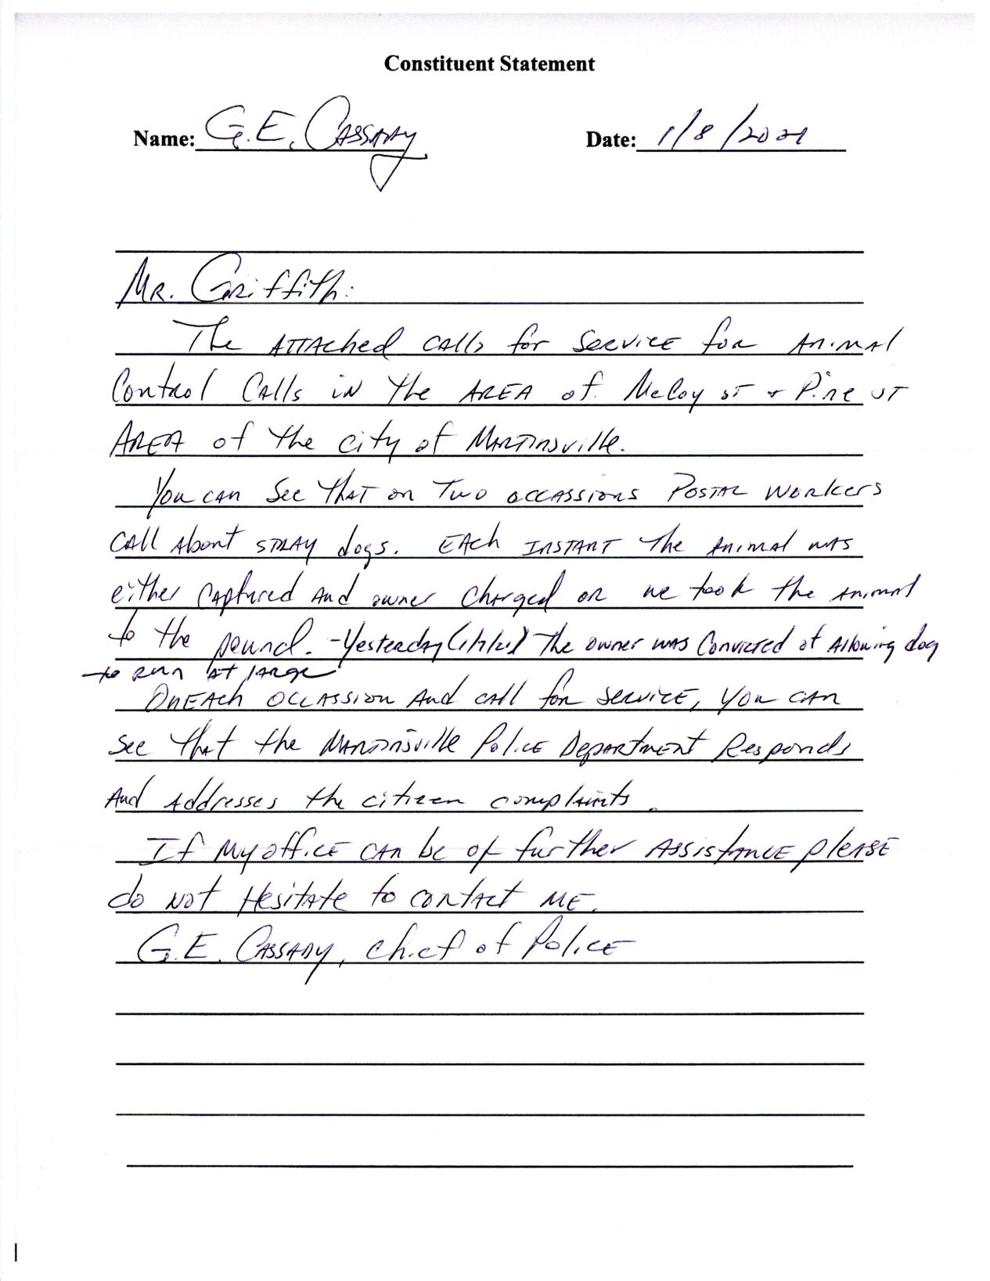 Constituent Statement
Name: G.E. Cassady Date: 1/8/2021
Mr. Griffith:
The attached calls for service for Animal
Control Calls in the area of McCoy ST + Pine ST
Area of the city of Martinsville.
You can see that on two occassions Postal workers
call about stray dogs. Each instant the animal was
either captured and owner charged or we took the animal
to the pound. - Yesterday the owner was convicted of allowing dog
to run at large
On each occassion and call for service, you can
see that the Martinsville Police Department Responds
And addresses the citizen complaints.
If my office can be of further assistance please
do not Hesitate to contact me.
G.E. Cassady, Chief of Police